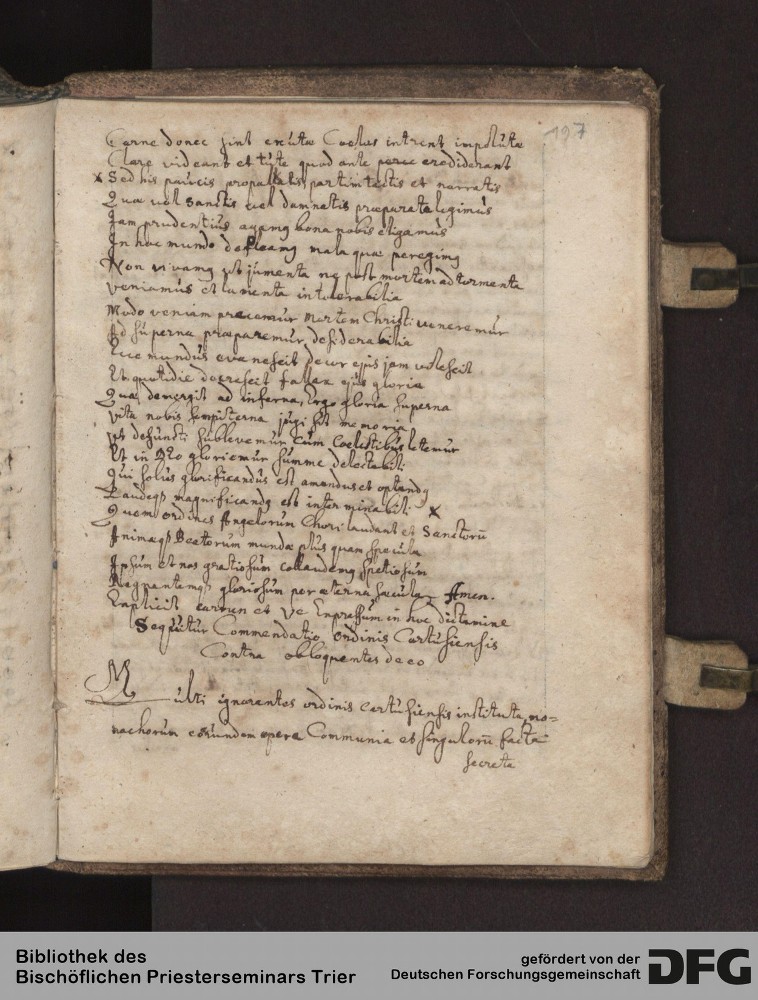 197
Carne donec sint exutae Coelus intrent impolutae
Clare videant et tute quod ante percrediderant
x Sed his paucis propalatis partim tectis et narratis
Quae vel Sanctis vel damnatis praeparata legimus
Jam prudentius agamq bona nobis eligamus
In hoc mundo defleamq mala quae peregimq
Non vivamq ut jumenta nq post mortem ad tormenta
Veniamus et lamenta intolerabilia
Modo veniam precemur Mortem Christi veneremur
Ad superna praeparemur desiderabilia
Ecce mundus evanescit decor ejus jam vilescit
Et quotidie decrescit fallax ejus gloria
Quae devergit ad inferna, Ergo gloria superna
Vita nobis sempiterna jugi sit memoria
Ut defuncti sublevemur cum Coelestibus letemur
Et in Deo gloriemur summe delectabili
Qui solus glorificandus est amandus et optandq
Laudeqz magnificandq est interminabili x
Quem ordines Angelorum Chori laudant et Sanctorū
Animaeqz Beatorum mundae plus quam specula
Ipsum et nos gratiosum collaudemq spetiosum
Regnantemqz gloriosum per aeterna saecula. Amen.
Explicit carmen et Ve Expressum in hoc dictamine
Sequitur Commendatio ordinis Cartusiensis
Contra obloquentes de eo
Multi ignorantes ordinis Cartusiensis instituta, mo=
nachorum eorundem opera Communia et singulorū facta
secreta
Bibliothek des
Bischöflichen Priesterseminars Trier
gefördert von der
Deutschen Forschungsgemeinschaft
DFG